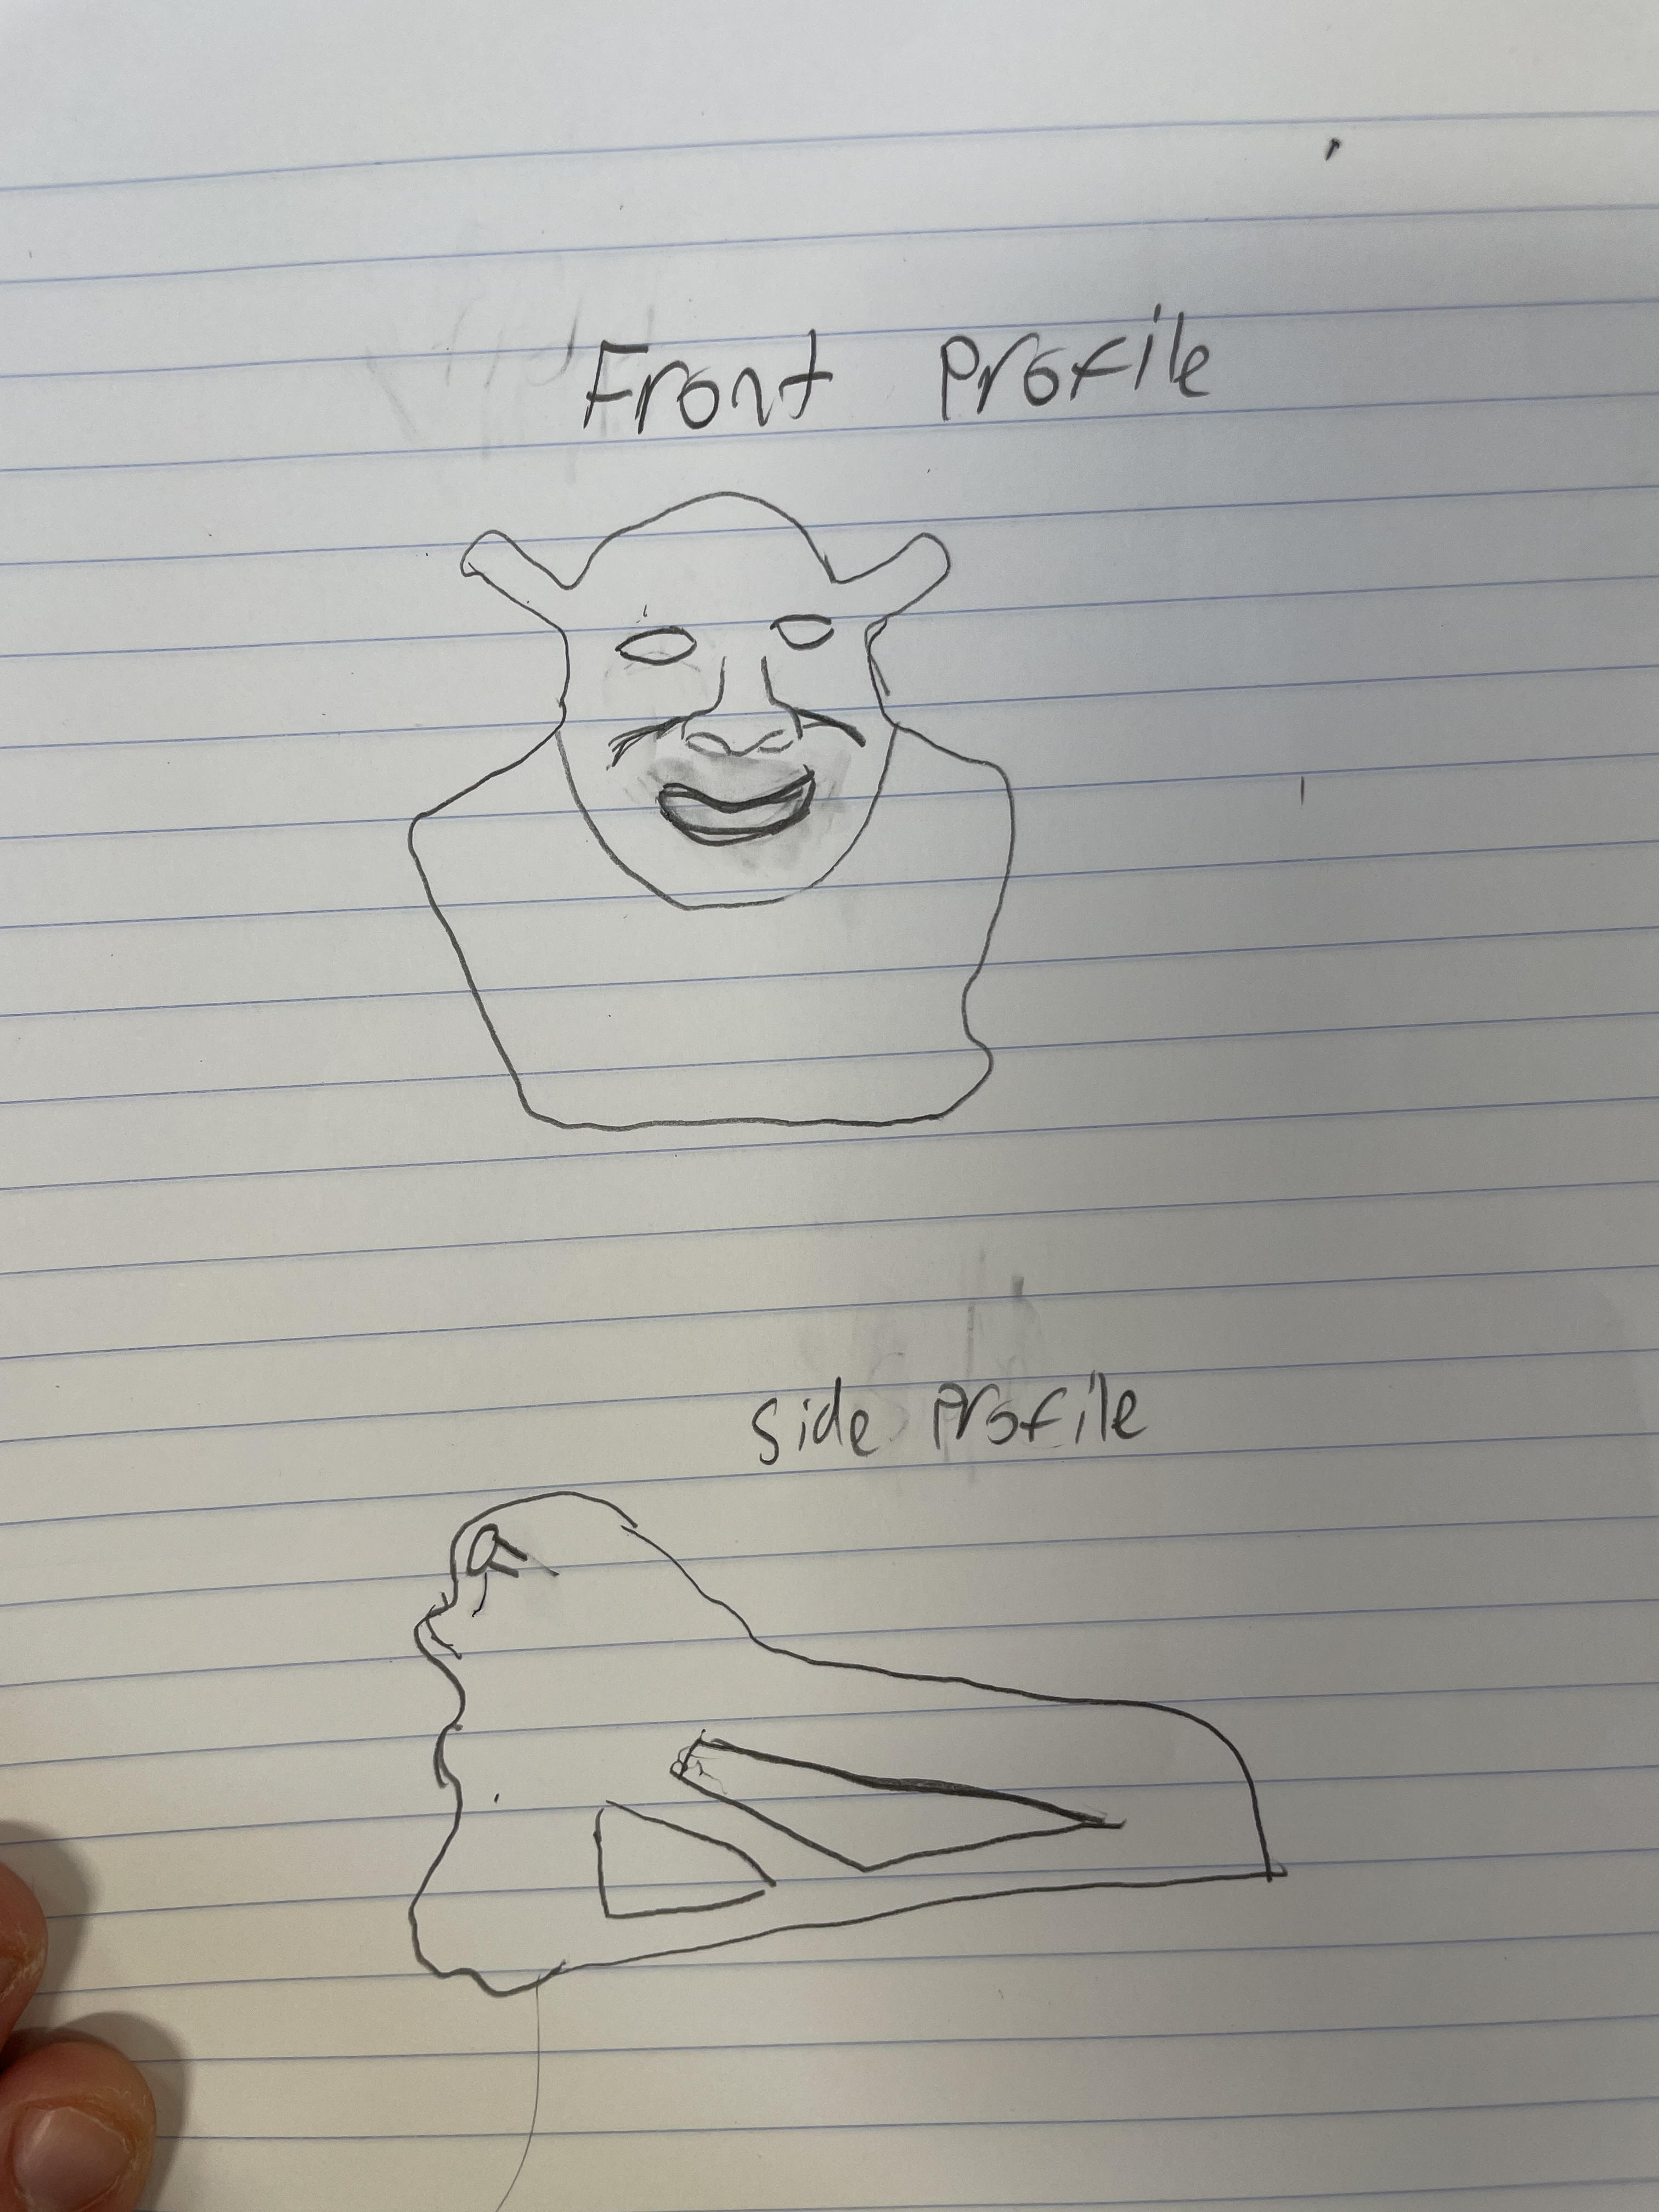 Front Profile
side Profile